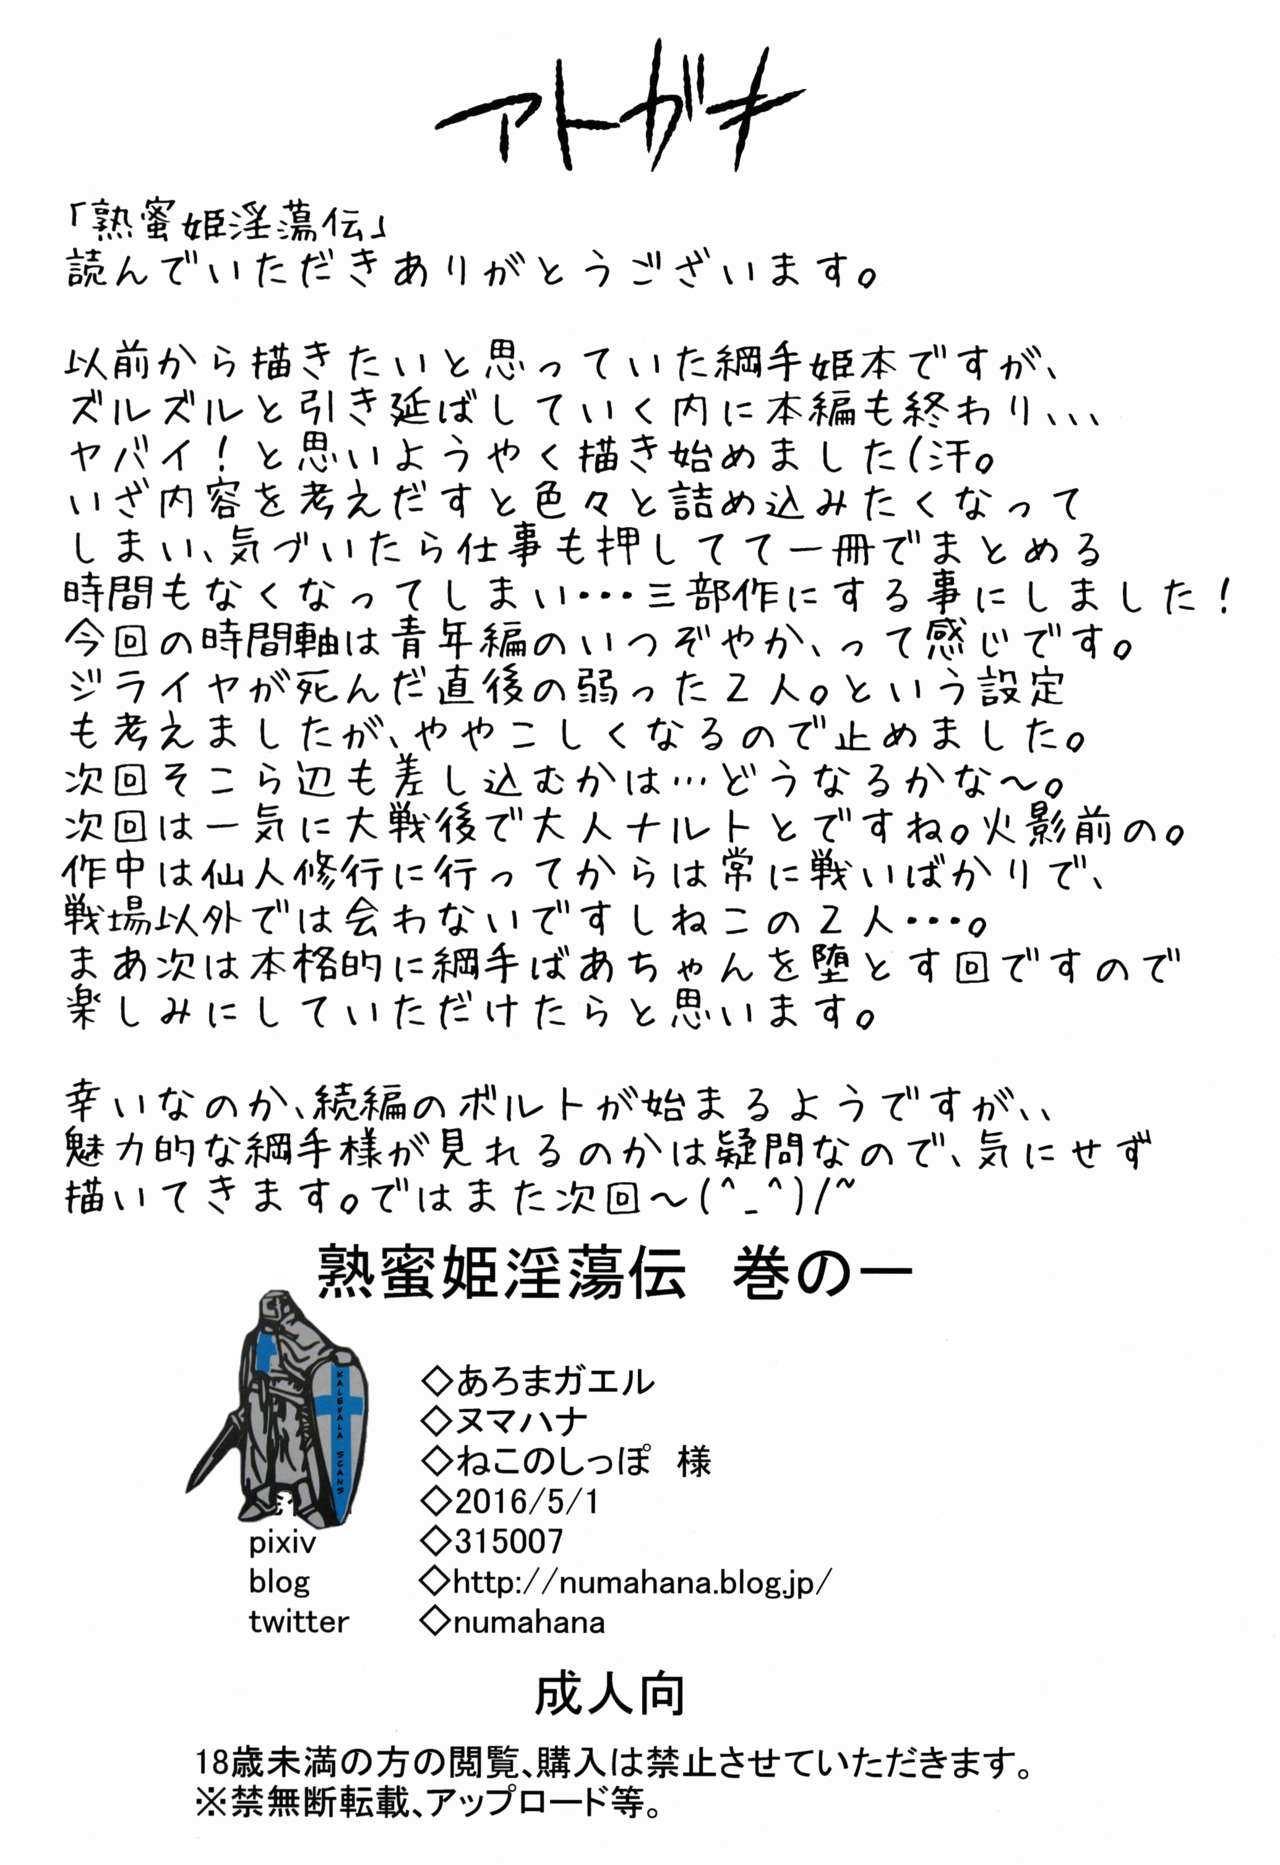 アトガキ
「熟蜜姫淫蕩伝」
読んでいただきありがとうございます。
以前から描きたいと思っていた綱手姫本ですが、
ズルズルと引き延ばしていく内に本編も終わり、、、
ヤバイ！と思いようやく描き始めました(汗。
いざ内容を考えだすと色々と詰め込みたくなって
しまい、気づいたら仕事も押してて一冊でまとめる
時間もなくなってしまい・・・三部作にする事にしました！
今回の時間軸は青年編のいつぞやか、って感じです。
ジライヤが死んだ直後の弱った2人。という設定
も考えましたが、ややこしくなるので止めました。
次回そこら辺も差し込むかは…どうなるかな～。
次回は一気に大戦後で大人ナルトとですね。火影前の。
作中は仙人修行に行ってからは常に戦いばかりで、
戦場以外では会わないですしねこの2人・・・。
まあ次は本格的に綱手ばあちゃんを堕とす回ですので
楽しみにしていただけたらと思います。
幸いなのか、続編のボルトが始まるようですが、、
魅力的な綱手様が見れるのかは疑問なので、気にせず
描いてきます。ではまた次回～(^_^)/~
熟蜜姫淫蕩伝　巻の一
◇あろまガエル
◇ヌマハナ
◇ねこのしっぽ　様
◇2016/5/1
pixiv ◇315007
blog ◇http://numahana.blog.jp/
twitter ◇numahana
KALEVALA SCANS
成人向
18歳未満の方の閲覧、購入は禁止させていただきます。
※禁無断転載、アップロード等。